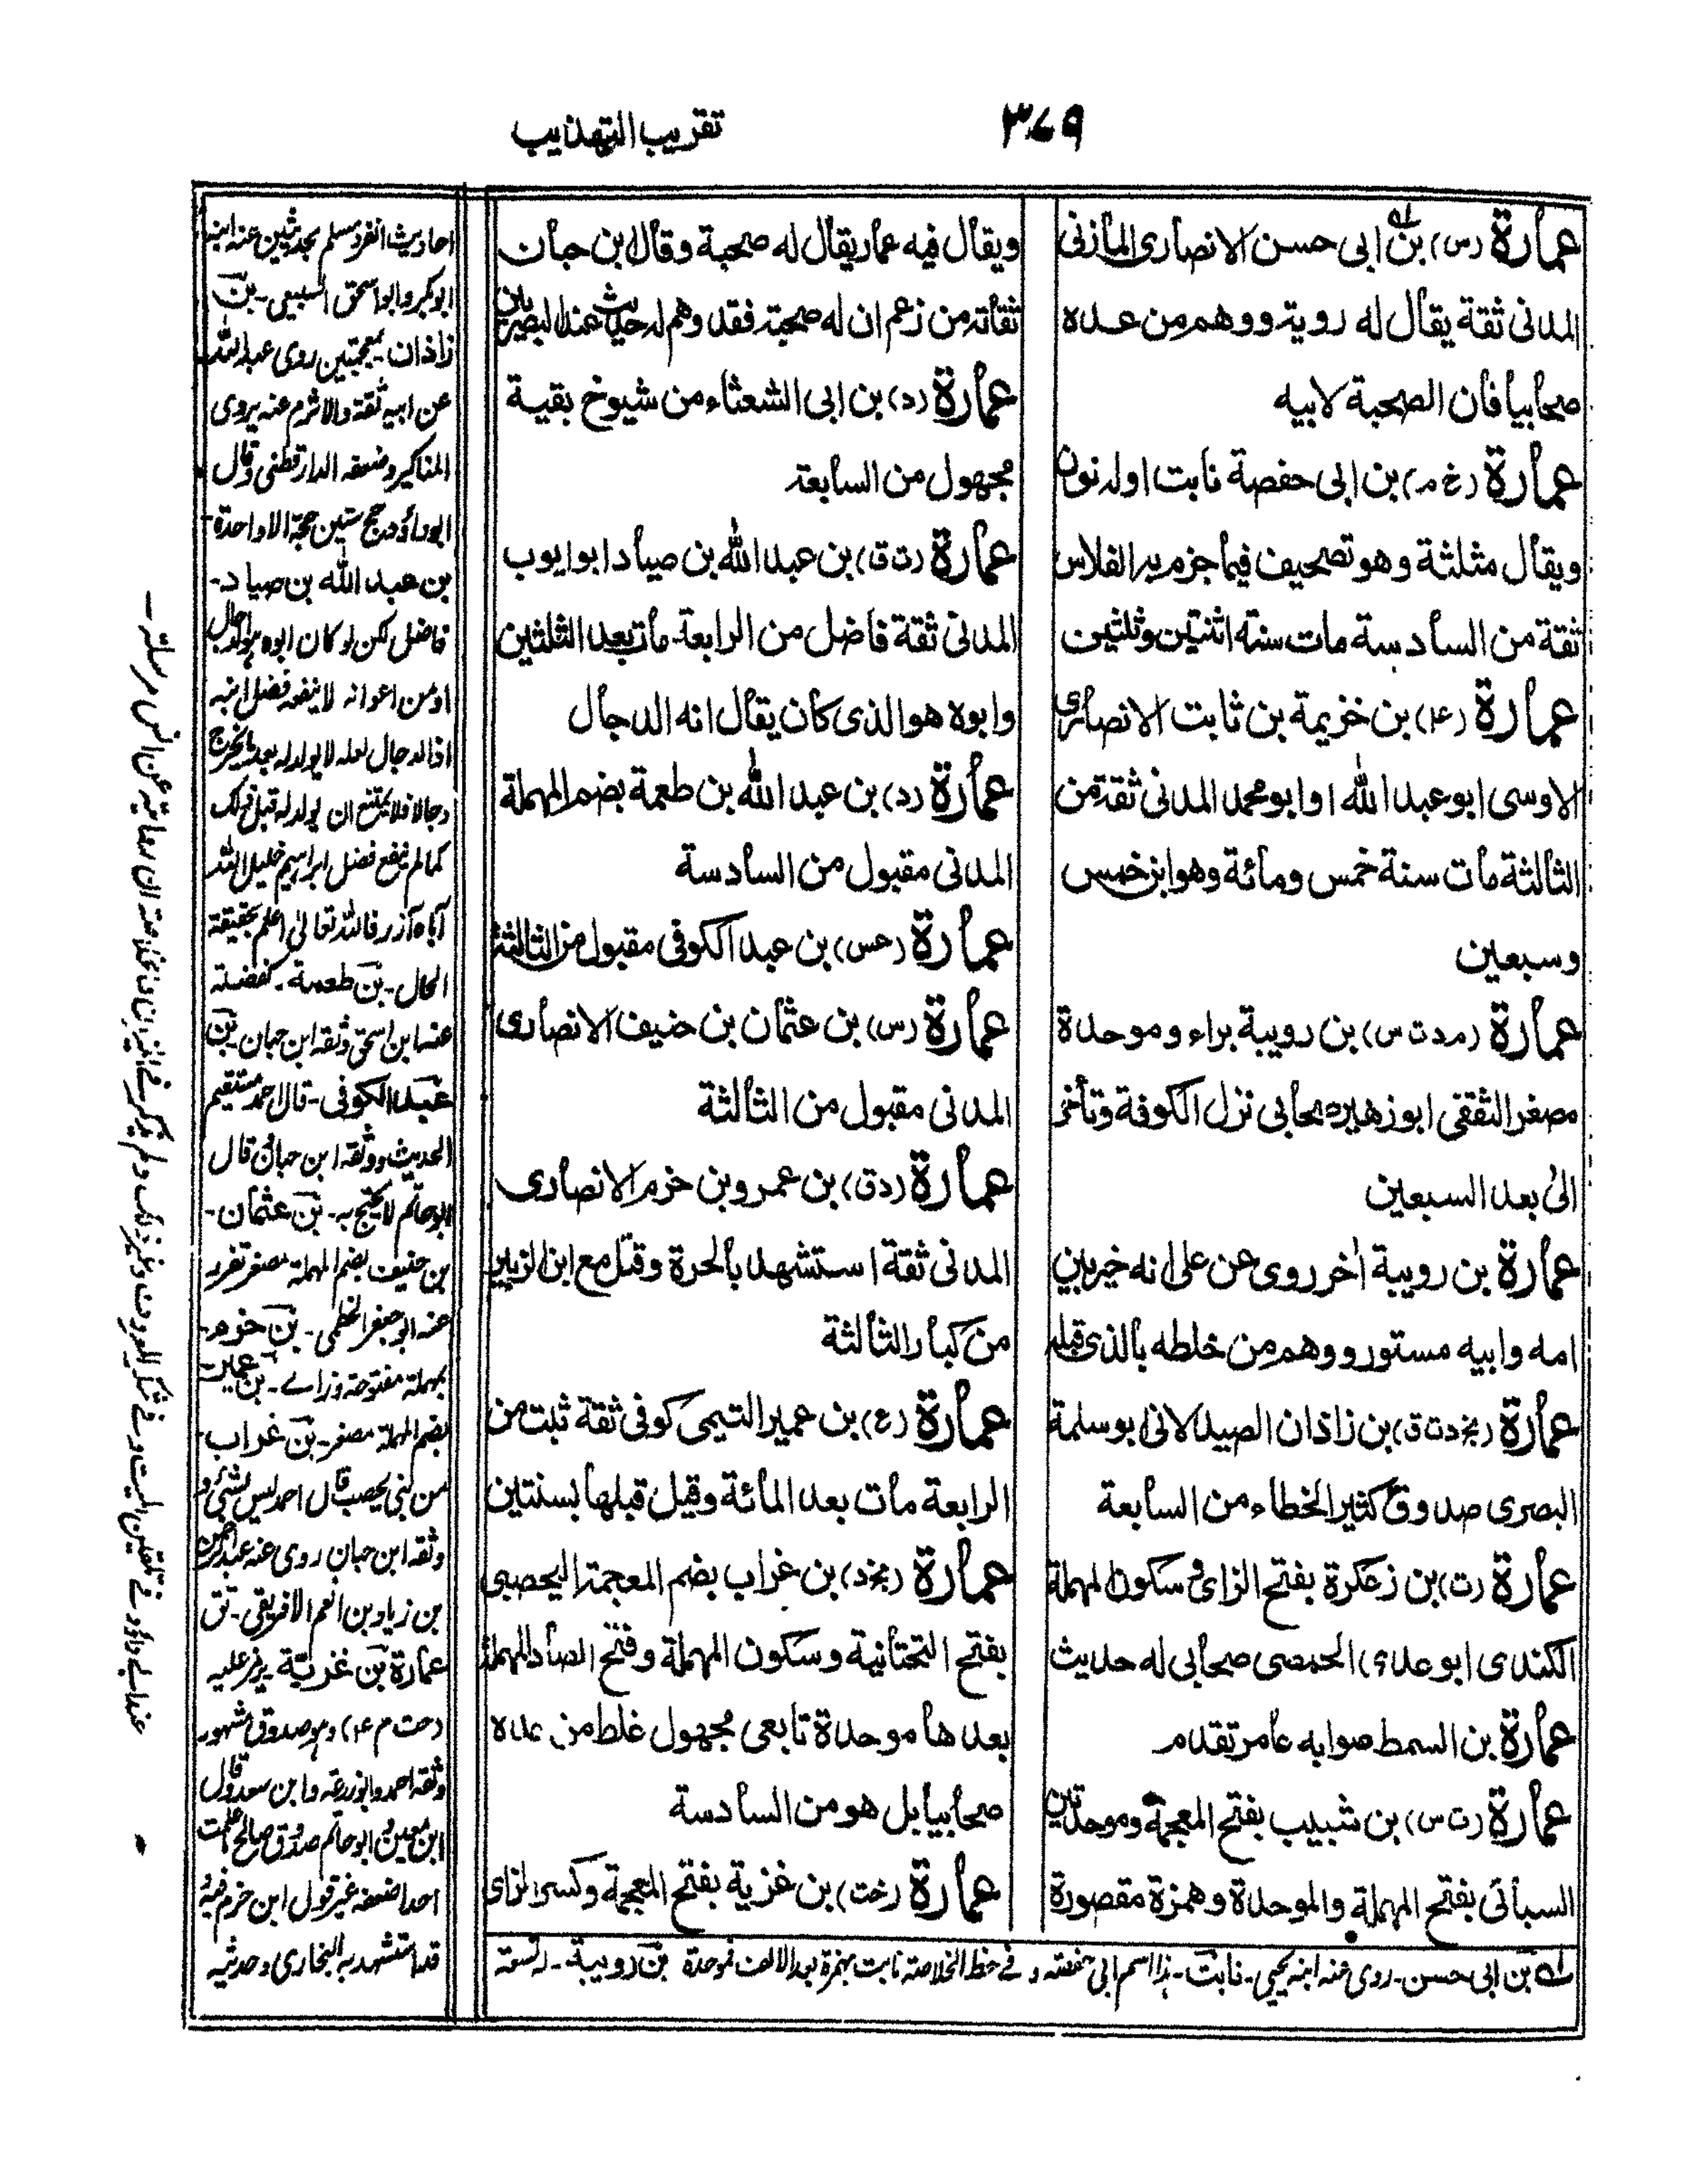 ٣٧٩
تقريب التهذيب
عمارة (س) بن ابى حسن الانصارى المازنى
المدنى ثقة يقال له روية ووهم من عده
صحابيا فان الصحبة لابيه
عمارة (خ م) بن ابى حفصة نابت اوله نون
ويقال مثلثة وهو تصحيف فيما جزم به الفلاس
ثقة من السادسة مات سنة اثنتين وثلثين
عمارة (٤) بن خزيمة بن ثابت الانصارى
الاوسى ابو عبد الله او ابو محمد المدنى ثقة من
الثالثة مات سنة خمس ومائة وهو ابن خمس
وسبعين
عمارة (م د ت س) بن رويبة براء وموحدة
مصغر الثقفى ابو زهير صحابى نزل الكوفة وتأخر
الى بعد السبعين
عمارة بن رويبة اخر روى عن على انه خير بين
امه وابيه مستور ووهم من خلطه بالذى قبله
عمارة (بخ د ت ق) بن زاذان الصيدلانى ابو سلمة
البصرى صدوق كثير الخطاء من السابعة
عمارة (ت) بن زعكرة بفتح الزاى وسكون المهملة
الكندى ابو عدى الحمصى صحابى له حديث
عمارة بن السمط صوابه عامر تقدم
عمارة (ت س) بن شبيب بفتح المعجمة وموحدتين
السبائى بفتح المهملة والموحدة وهمزة مقصورة
ويقال فيه عمار يقال له صحبة وقال ابن حبان
ثقاته من زعم ان له صحبة فقد وهم له حديث عند البصريين
عمارة (د) بن ابى الشعثاء من شيوخ بقية
مجهول من السابعة
عمارة (ت ق) بن عبد الله بن صياد ابو ايوب
المدنى ثقة فاضل من الرابعة مات بعد الثلثين
وابوه هو الذى كان يقال انه الدجال
عمارة (د) بن عبد الله بن طعمة بضم المهملة
المدنى مقبول من السادسة
عمارة (عس) بن عبد الكوفى مقبول من الثالثة
عمارة (س) بن عثمان بن حنيف الانصارى
المدنى مقبول من الثالثة
عمارة (د ق) بن عمرو بن حزم الانصارى
المدنى ثقة استشهد بالحرة وقتل مع ابن الزبير
من كبار الثالثة
عمارة (ع) بن عمير التيمى كوفى ثقة ثبت من
الرابعة مات بعد المائة وقيل قبلها بسنتين
عمارة (بخ د) بن غراب بضم المعجمة اليحصبى
بفتح التحتانية وسكون المهملة وفتح الصاد المهملة
بعدها موحدة تابعى مجهول غلط من عده
صحابيا بل هو من السادسة
عمارة (خت) بن غزية بفتح المعجمة وكسر الزاى
احاديث انفرد مسلم بحديثين عنه ابنه
ابوبكر وابو اسحق السبيعى - بن
زاذان - بمعجمتين روى عبد الله
عن ابيه ثقة والاثرم عنه يروى
المناكير وضعفه الدارقطنى وقال
ابوداؤد حج ستين حجة الا واحدة -
بن عبد الله بن صياد -
فاضل لكن لو كان ابوه هو الدجال
او من اعوانه لا ينفعه فضل ابنه
اذ الدجال لعله لا يولد له بعد ما يخرج
دجالا فلا يمتنع ان يولد له قبل ذلك
كما لم ينفع فضل ابراهيم خليل الله
آباه آزر فالله تعالى اعلم بحقيقة
الحال - بن طعمة -
عنه ابن اسحق وثقه ابن حبان بن
عبد الكوفى - قال احمد مستقيم
الحديث ووثقه ابن حبان قال
ابو حاتم لا يحتج به - بن عثمان -
بن حنيف بضم المهملة مصغر تفرد
عنه ابو جعفر الخطمى - بن حزم -
بمهملة مفتوحة وزاے - بن عمير -
بضم المهملة مصغر - بن غراب -
من بنى يحصب قال احمد ليس بشئ و
وثقه ابن حبان روى عنه عبد الرحمن
بن زياد بن انعم الافريقى - تق
عمارة بن غزية يرمز عليه
(خت م ٤) وهو صدوق مشهور
وثقه احمد وابو زرعة وابن سعد وقال
ابن معين وابو حاتم صدوق صالح ما علمت
احدا ضعفه غير قول ابن حزم فيه
قد استشهد به البخارى وحديثه
له بن ابى حسن - روى عنه ابنه يحيى - نابت - هذا اسم ابى حفصة و فى خط الخلاصة ثابت بهمزة بعد الالف فموحدة بن رويبة - له تسعة